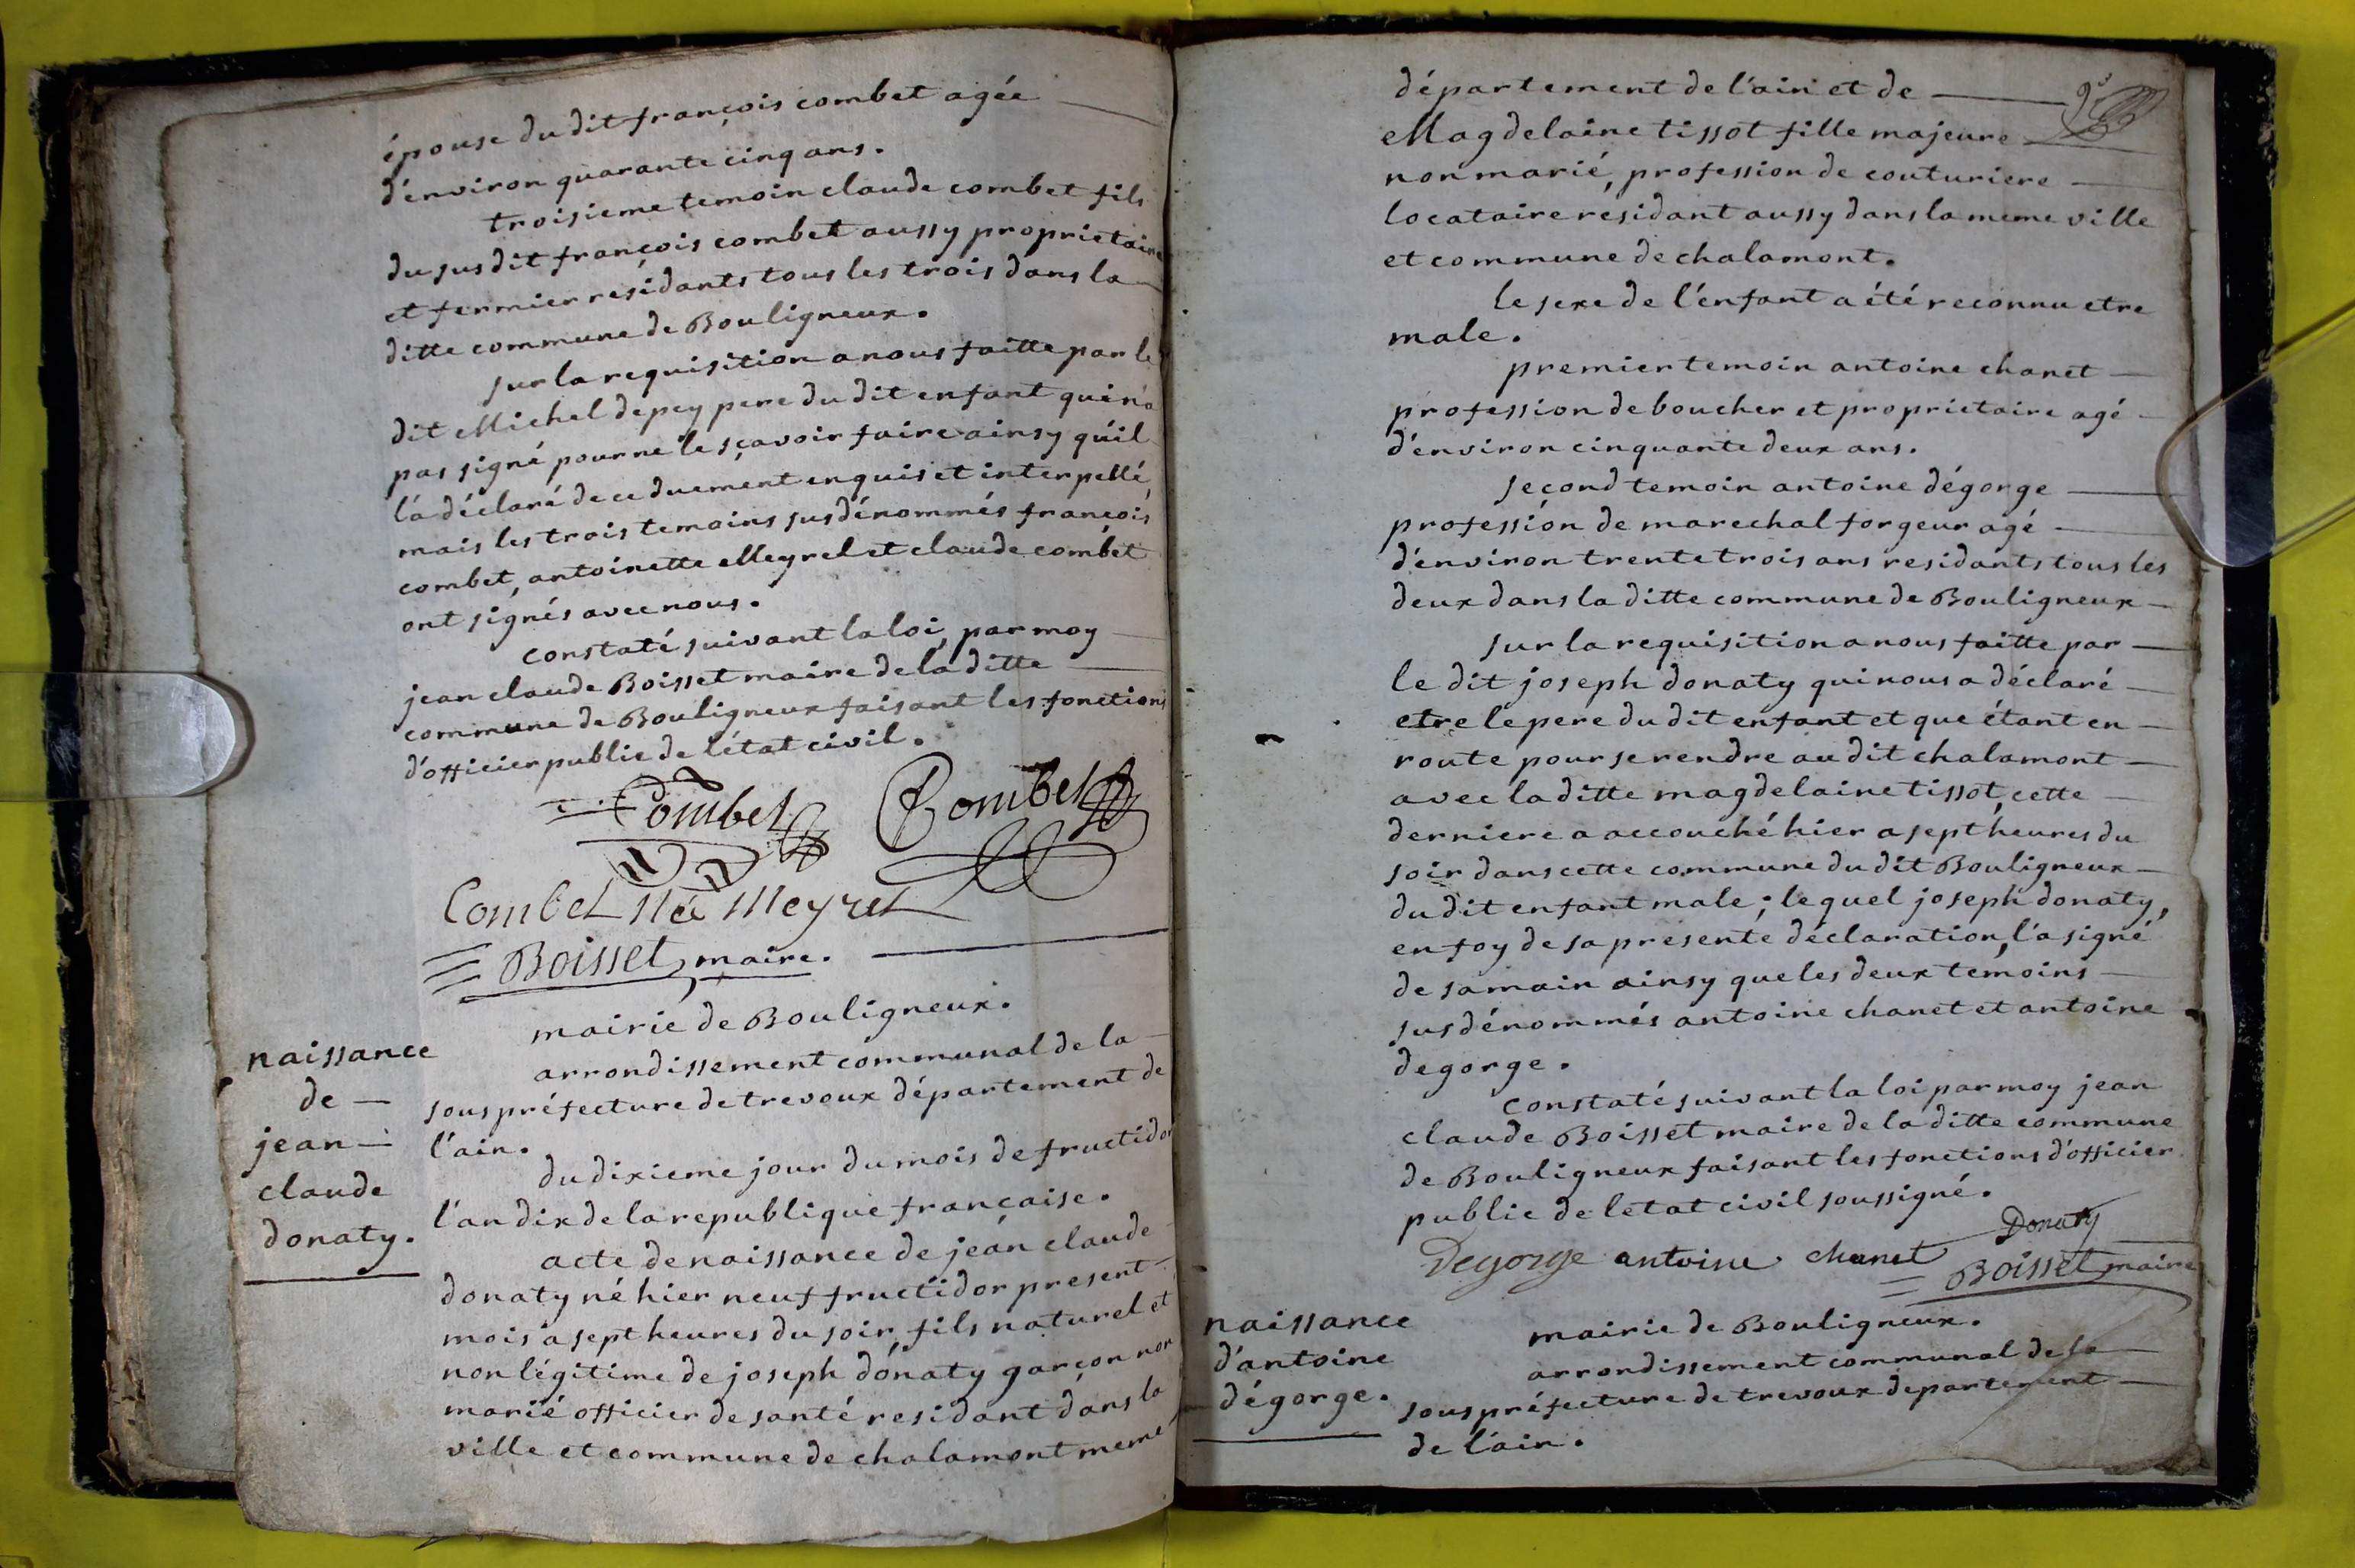 épouse du dit françois combet agée
d'environ quarante cinq ans.
troisieme temoin claude combet fils
du sus dit françois combet aussy proprietaire
et fermier residants tous les trois dans la
ditte commune de Bouligneux.
sur la requisition a nous faitte par le
dit Michel depey pere du dit enfant qui n'a
pas signé pour ne le sçavoir faire ainsy qu'il
l'a déclaré de ce duement enquis et interpellé,
mais les trois temoins susdénommés françois
combet, antoinette Meyrel et claude combet
ont signés avec nous.
constaté suivant la loi, par moy
jean claude Boisset maire de la ditte
commune de Bouligneux faisant les fonctions
d'officier public de l'état civil.
Combet Combet
Combet Née Meyrel
Boisset, maire.
naissance
de
jean
claude
donaty.
mairie de Bouligneux.
arrondissement communal de la
sous préfecture de trevoux département de
l'ain.
du dixieme jour du mois de fructidor
l'an dix de la republique française.
acte de naissance de jean claude
donaty né hier neuf fructidor present
mois a sept heures du soir, fils naturel et
non légitime de joseph donaty garçon non
marié officier de santé residant dans la
ville et commune de chalamont meme
département de l'ain et de
Magdelaine tissot fille majeure
non marié, profession de couturiere
locataire residant aussy dans la meme ville
et commune de chalamont.
le sexe de l'enfant a été reconnu etre
male.
premier temoin antoine chanet
profession de boucher et proprietaire agé
d'environ cinquante deux ans.
second temoin antoine dégorge
profession de marechal forgeur agé
d'environ trente trois ans residants tous les
deux dans la ditte commune de Bouligneux
sur la requisition a nous faitte par
le dit joseph donaty qui nous a déclaré
etre le pere du dit enfant et que étant en
route pour se rendre au dit chalamont
avec la ditte magdelaine tissot, cette
derniere a accouché hier a sept heures du
soir dans cette commune du dit Bouligneux
du dit enfant male ; lequel joseph donaty,
en foy de sa presente déclaration, l'a signé
de sa main ainsy que les deux temoins
susdénommés antoine chanet et antoine
degorge.
constaté suivant la loi par moy jean
claude Boisset maire de la ditte commune
de Bouligneux faisant les fonctions d'officier
public de letat civil soussigné.
Donaty
Degorge antoine chanet
Boisset, maire
naissance
d'antoine
dégorge.
mairie de Bouligneux.
arrondissement communal de la
sous préfecture de trevoux departement
de l'ain.